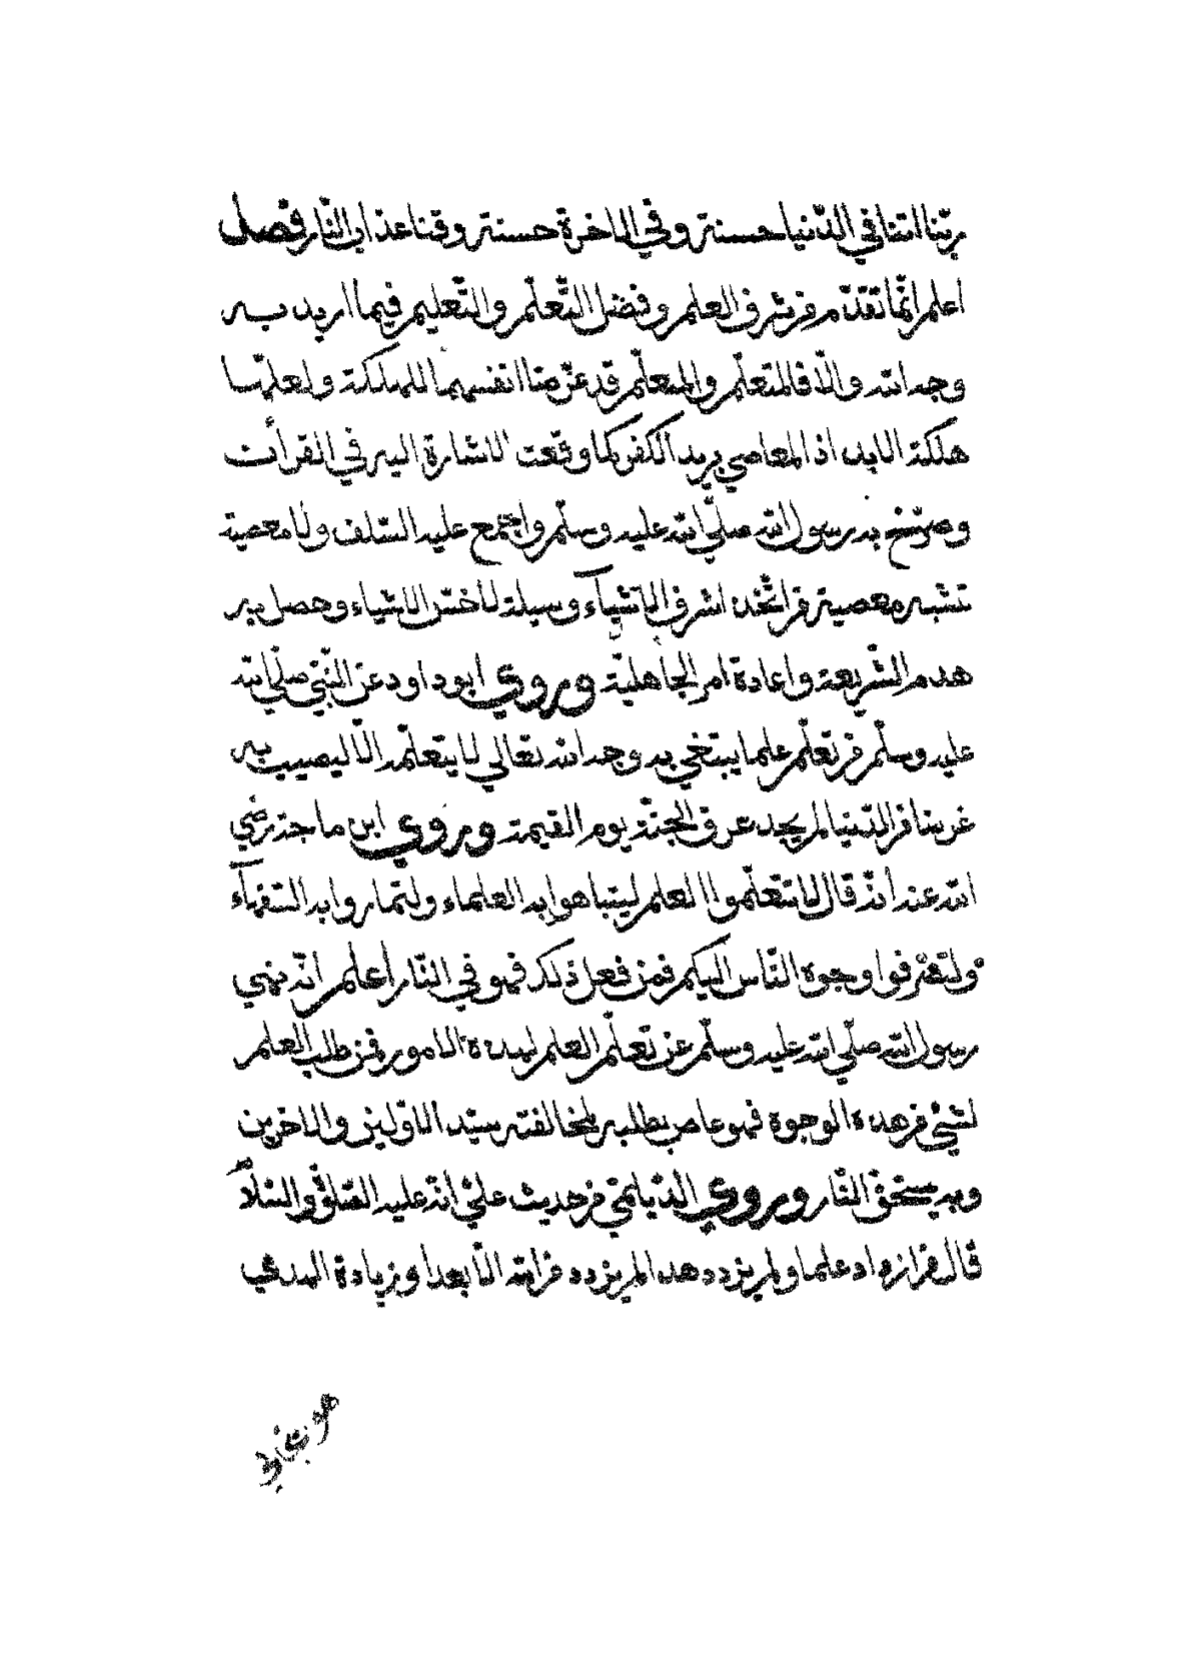 ربّنا اتنا في الدّنيا حسنة وفي الاخرة حسنة وقنا عذاب النّار فصل
اعلم انّما تقدّم من شرف العلم وفضل التّعلّم والتّعليم فيما اريد به
وجه الله والّا فالمتعلّم والمعلّم قد عرّضتا انفسهما للهلكة ولعلّها
هلكة الابد اذ المعاصي بريد الكفر كما وقعت الاشارة اليه في القرأن
وصرّح به رسول الله صلّي الله عليه وسلّم واجمع عليه السّلف ولا معصية
تشبه معصية من اتّخذ اشرف الاشيآء وسيلة لاخسّ الاشياء وحصل به
هدم الشّريعة واعادة امر الجاهليّة وروي ابو داود عن النّبيّ صلّي الله
عليه وسلّم من تعلّم علما يبتغي به وجه الله تعالي لا يتعلّمه الّا ليصيب به
غرضا من الدّنيا لم يجد عرف الجنّة يوم القيمة وروي ابن ماجة رضي
الله عنه انّه قال لا تتعلّموا العلم ليتباهوا به العلماء ولتماروا به السّفهآء
ولتصرفوا وجوه النّاس اليكم فمن فعل ذلك فهو في النّار اعلم انّه نهي
رسول الله صلّي الله عليه وسلّم عن تعلّم العلم لهذه الامور فمن طلب العلم
لشيئ من هذه الوجوه فهو عاص بطلبه لمخالفته سيّد الاوّلين والاخرين
وبه يستحقّ النّار وروي الدّيلمي من حديث عليّ انّه عليه الصّلوة والسّلام
قال من ازداد علما ولم يزدد هدا لم يزدد من الله الّا بعدا وزيادة الهدي
هو